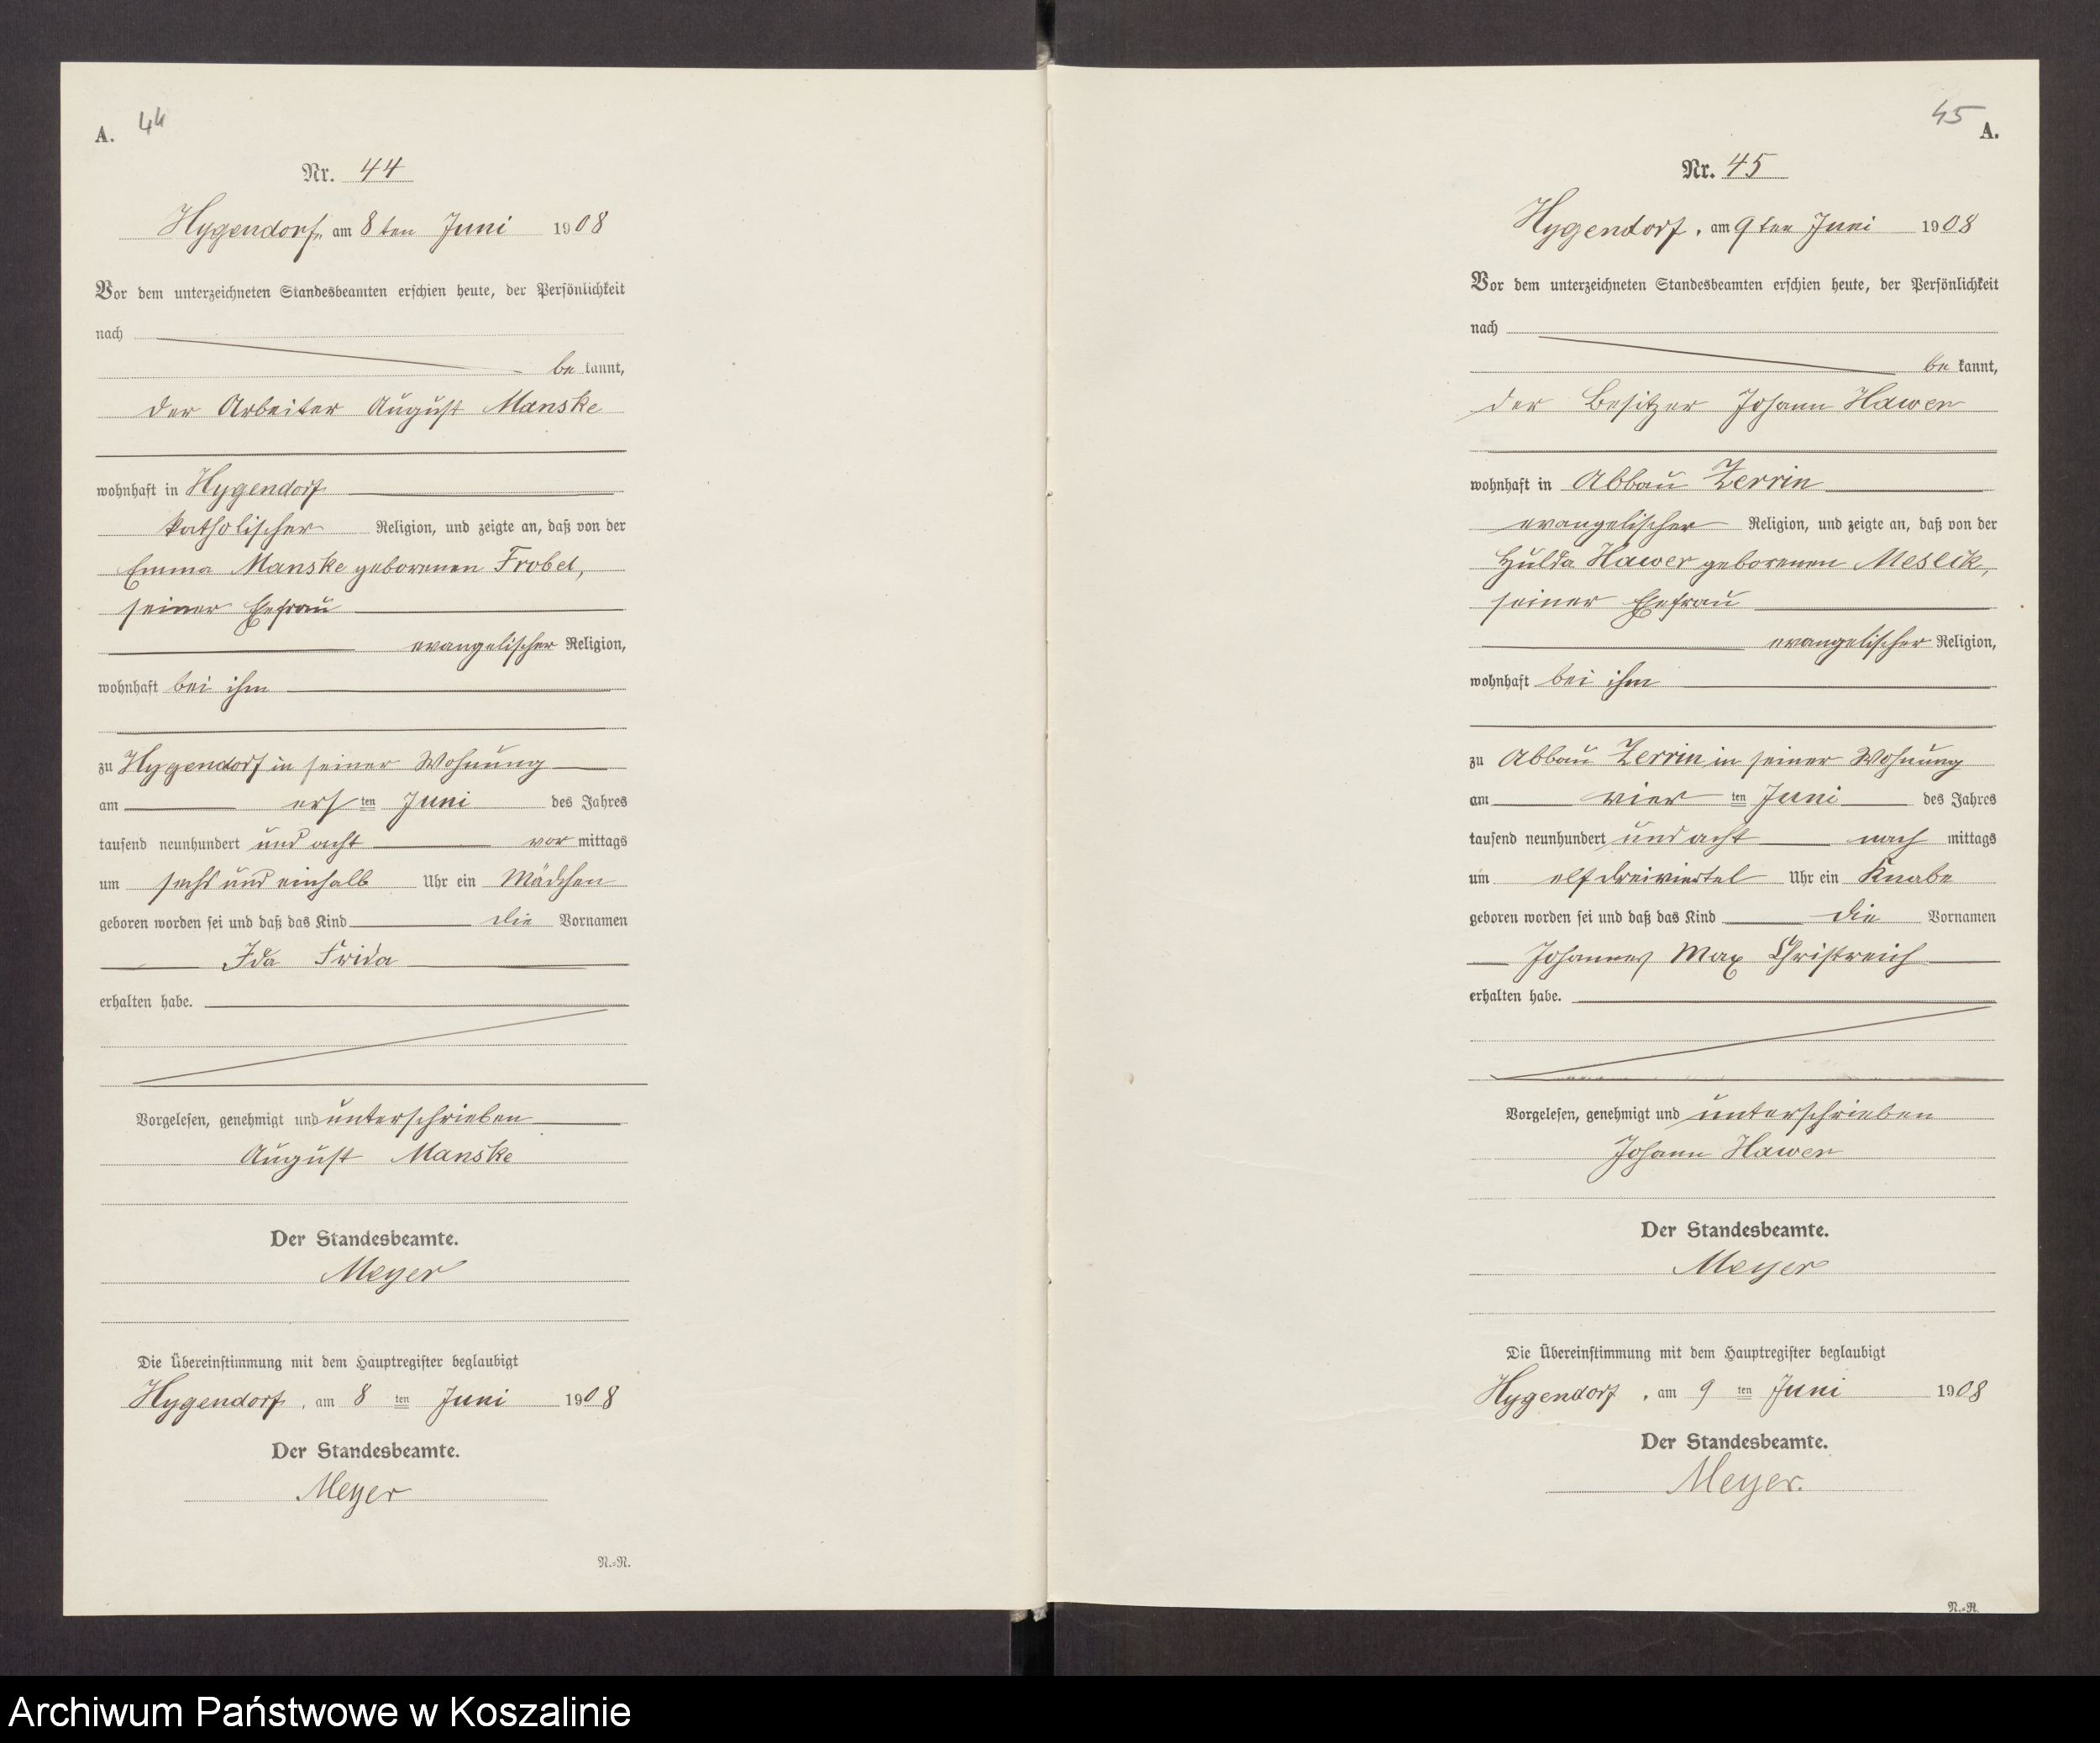 A. 44
Nr. 44
Hygendorf, am 8ten Juni 1908
Vor dem unterzeichneten Standesbeamten erschien heute, der Persönlichkeit
nach
be kannt,
der Arbeiter August Manske
wohnhaft in Hygendorf
katholischer Religion, und zeigte an, daß von der
Emma Manske geborenen Frobel,
seiner Ehefrau
evangelischer Religion,
wohnhaft bei ihm
zu Hygendorf in seiner Wohnung
am ersten Juni des Jahres
tausend neunhundert und acht vor mittags
um sechs und einhalb Uhr ein Mädchen
geboren worden sei und daß das Kind die Vornamen
Ida Frida
erhalten habe.
Vorgelesen, genehmigt und unterschrieben
August Manske
Der Standesbeamte.
Meyer
Die Übereinstimmung mit dem Hauptregister beglaubigt
Hygendorf, am 8 ten Juni 1908
Der Standesbeamte.
Meyer
N.=R.
45 A.
Nr. 45
Hygendorf, am 9ten Juni 1908
Vor dem unterzeichneten Standesbeamten erschien heute, der Persönlichkeit
nach
be kannt,
der Besitzer Johann Hawer
wohnhaft in Abbau Zerrin
evangelischer Religion, und zeigte an, daß von der
Hulda Hawer geborenen Meseck,
seiner Ehefrau
evangelischer Religion,
wohnhaft bei ihm
zu Abbau Zerrin in seiner Wohnung
am vier ten Juni des Jahres
tausend neunhundert und acht nach mittags
um elf dreiviertel Uhr ein Knabe
geboren worden sei und daß das Kind die Vornamen
Johannes Max Christreich
erhalten habe.
Vorgelesen, genehmigt und unterschrieben
Johann Hawer
Der Standesbeamte.
Meyer
Die Übereinstimmung mit dem Hauptregister beglaubigt
Hygendorf, am 9 ten Juni 1908
Der Standesbeamte.
Meyer.
N.=R.
Archiwum Państwowe w Koszalinie